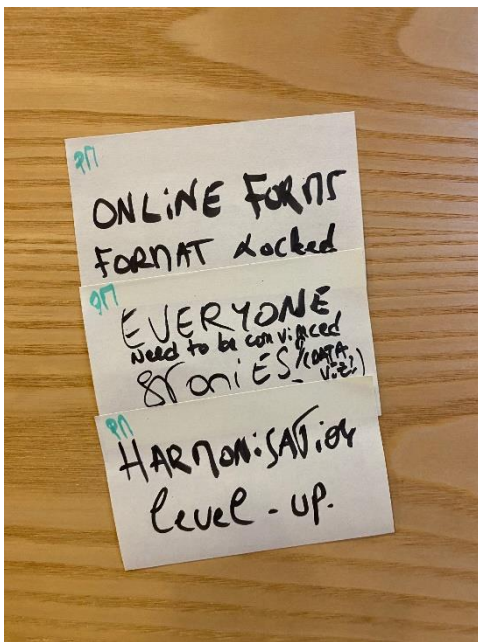 PM
ONLiNE FORMS
FORMAT Locked
PM
EVERYONE
Need to be convinced
STORiES! (DATA
Viz!)
PM
HARMONiSATiON
level-up.